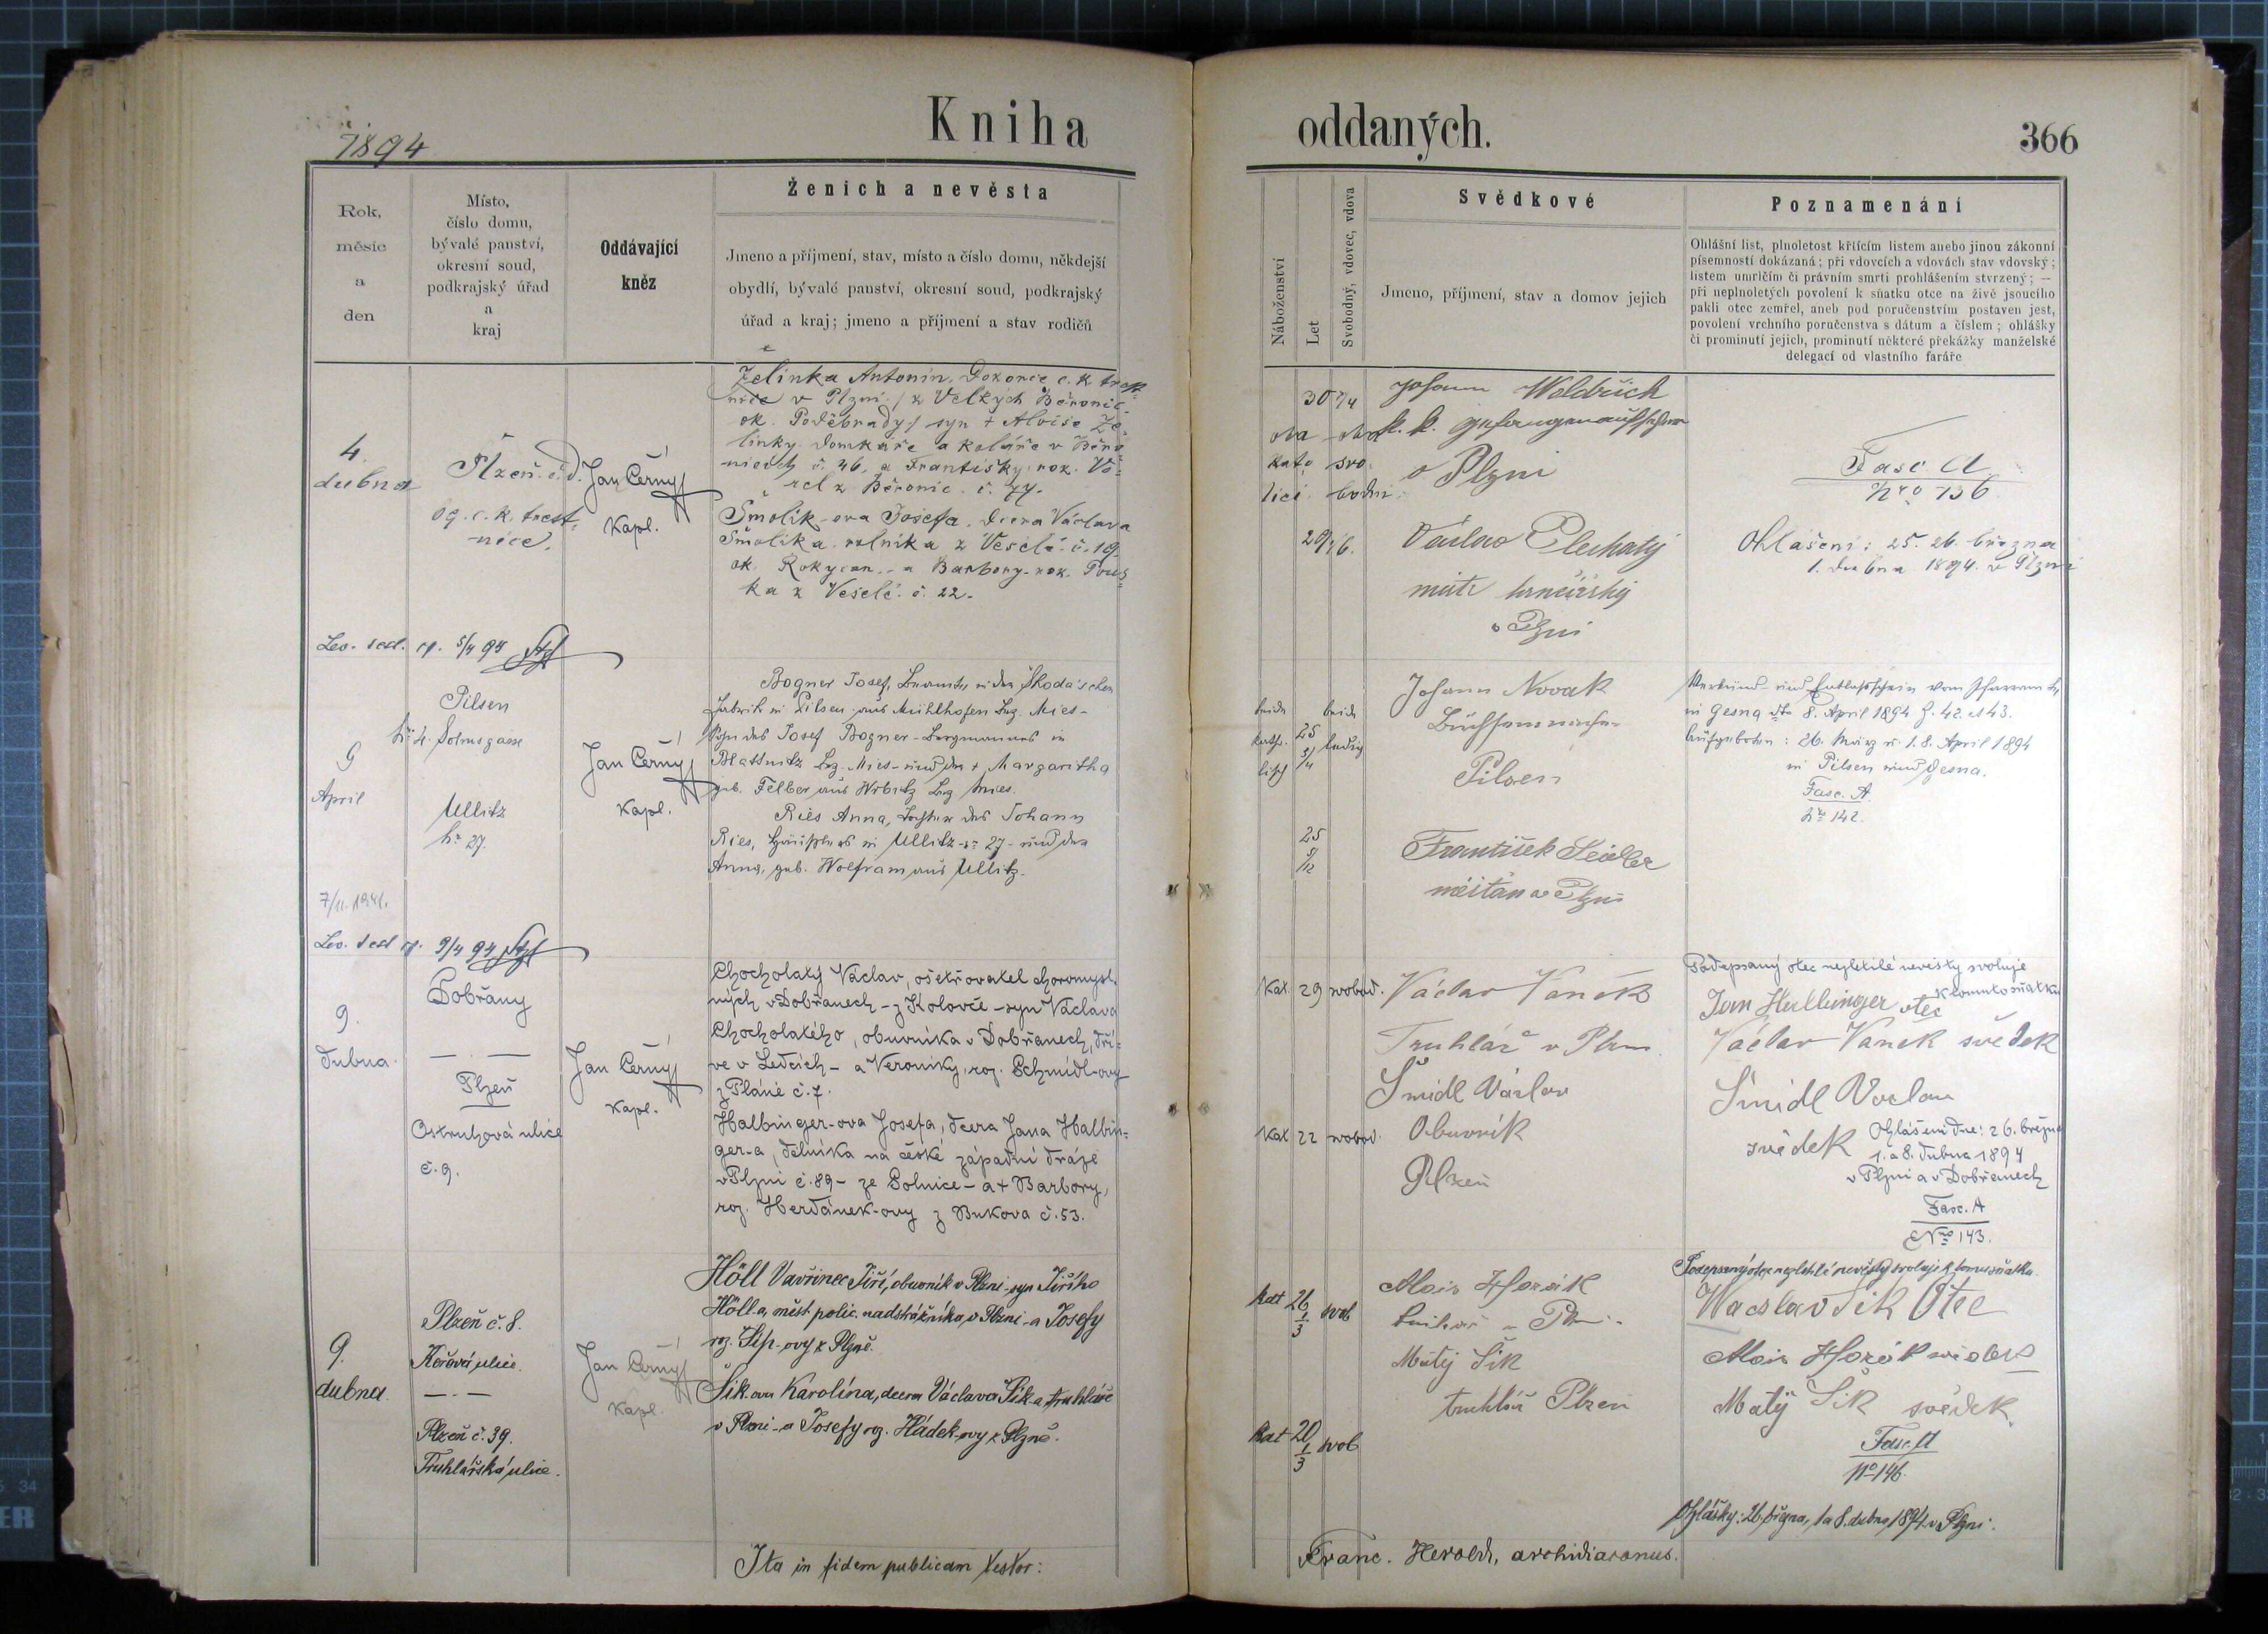 1894
Kniha
Rok,
měsíc
a
den
Místo,
číslo domu,
bývalé panství,
okresní soud,
podkrajský úřad
a
kraj
Oddávající
kněz
Ženich a nevěsta
Jmeno a příjmení, stav, místo a číslo domu, někdejší
obydlí, bývalé panství, okresní soud, podkrajský
úřad a kraj; jmeno a příjmení a stav rodičů
4.
dubna
Plzeň č. d.
09. c. k. trest-
nice.
Jan Černý
Kapl.
Želinka Antonín, Dozorce c. k. trest-
nice v Plzni / z Velkých
ok. Poděbrady / syn + Aloise Že-
linky domkáře a koláře v Běro-
nicích č. 46, a Františky roz. Vo-
rel z Běronic č. 74.
Šmolík-ova Josefa, dcera Václava
Šmolíka rolníka z Veselé č. 19
ok. Rokycan. a Barbory roz. Pous-
ka z Veselé č. 22.
5/4 94
9
April
Pilsen
Nr 4. Solmsgasse
Ullitz
Nr 27.
Jan Černý
Kapl.
Bogner Josef, Beamter in der Škoda'schen
Fabrik in Pilsen aus Mühlhöfen Bez. Mies-
Sohn des Josef Bogner - Bergmannes in
Blattnitz Bez. Mies - und der + Margaritha
geb. Felber aus Bez Mies.
Ries Anna, Tochter des Johann
Ries, Häuslers in Ullitz Nr 27 - und der
Anna, geb. Wolfram aus Ullitz.
7/11. 1941.
9/4 94
9.
dubna.
Dobřany
— . —
Plzeň
Ostruhová ulice
č. 9.
Jan Černý
Kapl.
Chocholatý Václav, ošetřovatel choromysl-
ných v Dobřanech - z Kolovče - syn Václava
Chocholatého, obuvníka v Dobřanech, dří-
ve v Ledcích - a Veroniky, roz. Schmidl-ovy
z Pláně č. 7.
Halbinger-ova Josefa, dcera Jana Halbin-
ger-a, dělníka na české západní dráze
v Plzni č. 89 - ze Solnice - a + Barbory,
roz. Herdánek-ovy z Bukova č. 53.
9.
dubna.
Plzeň č. 8.
Kořová ulice.
— . —
Plzeň č. 39.
Truhlářská ulice.
Jan Černý
Kapl.
Höll Vavřinec Jiří, obuvník v Plzni - syn Jiřího
Höll-a, měst. polic. nadstrážníka v Plzni - a Josefy
roz. Šíp-ovy z Plzně.
Šik-ova Karolína, dcera Václava Šik-a truhláře
v Plzni - a Josefy roz. Hádek-ovy z Plzně.
Ita in fidem publicam testor:
oddaných.
366
Náboženství
Let
Svobodný, vdovec, vdova
Svědkové
Jmeno, příjmení, stav a domov jejich
Poznamenání
Ohlášní list, plnoletost křtícím listem anebo jinou zákonní
písemností dokázaná; při vdovcích a vdovách stav vdovský;
listem umrlčím či právním smrti prohlášením stvrzený; —
při neplnoletých povolení k sňatku otce na živě jsoucího
pakli otec zemřel, aneb pod poručenstvím postaven jest,
povolení vrchního poručenstva s dátum a číslem; ohlášky
či prominutí jejich, prominutí některé překážky manželské
delegací od vlastního faráře
oba
kato
líci
30
oba
svo-
bodni
29
Johann Woldřich
k. k. Gefangenaufseher
v Plzni
Václav Plechatý
mistr hrnčířský
v Plzni
Fasc A
Nro 136
Ohlášení: 25. 26. března
1. dubna 1894. v Plzni
beide
katho-
lisch
25
3/4
beide
ledig
25
5/12
Johann Novak
Büchsenmacher
Pilsen
František Seidler
měšťan v Plzni
Verkünd- und Entlaßschein vom Pfarramte
in Gesna dto 8. April 1894 Z. 42. et 43.
Aufgeboten: 26. März u. 1. 8. April 1894
in Pilsen und Gesna.
Fasc. A.
Nro 142.
Kat. 29 svobod.
Kat 22 svobod.
Václav Vaněk
Truhlář v Plzni
Šmidl Václav
Obuvník
Plzeň
Podepsaný otec nezletilé nevěsty svoluje
k tomuto sňatku
Jan Hallinger otec
Václav Vaněk svědek
Šmidl Vaclav
svědek
Ohlášení dne: 26. března
1. a 8. dubna 1894
v Plzni a v Dobřanech
Fasc. A
Nro 143.
Kat 26 1/3 svob
Kat 20 1/3 svob
Alois Horák
Matěj Šik
truhlář Plzeň
Podepsaný otec nezletilé nevěsty svoluje k tomu sňatku.
Wacslav Šik Otec
Alois Horák svědek
Matěj Šik svědek
Fasc. A
No 146.
Ohlášky: 26. března, 1 a 8. dubna 1894 v Plzni.
Franc. Herold, archidiaconus.